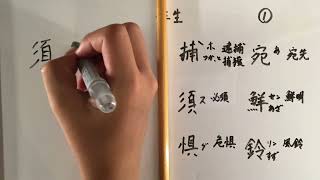 須
生 ①
捕 ホ 逮捕 宛 あ 宛先
つか、と 捕獲
須 ス 必須 鮮 セン 鮮明
あざ
惧 グ 危惧 鈴 リン 風鈴
すず